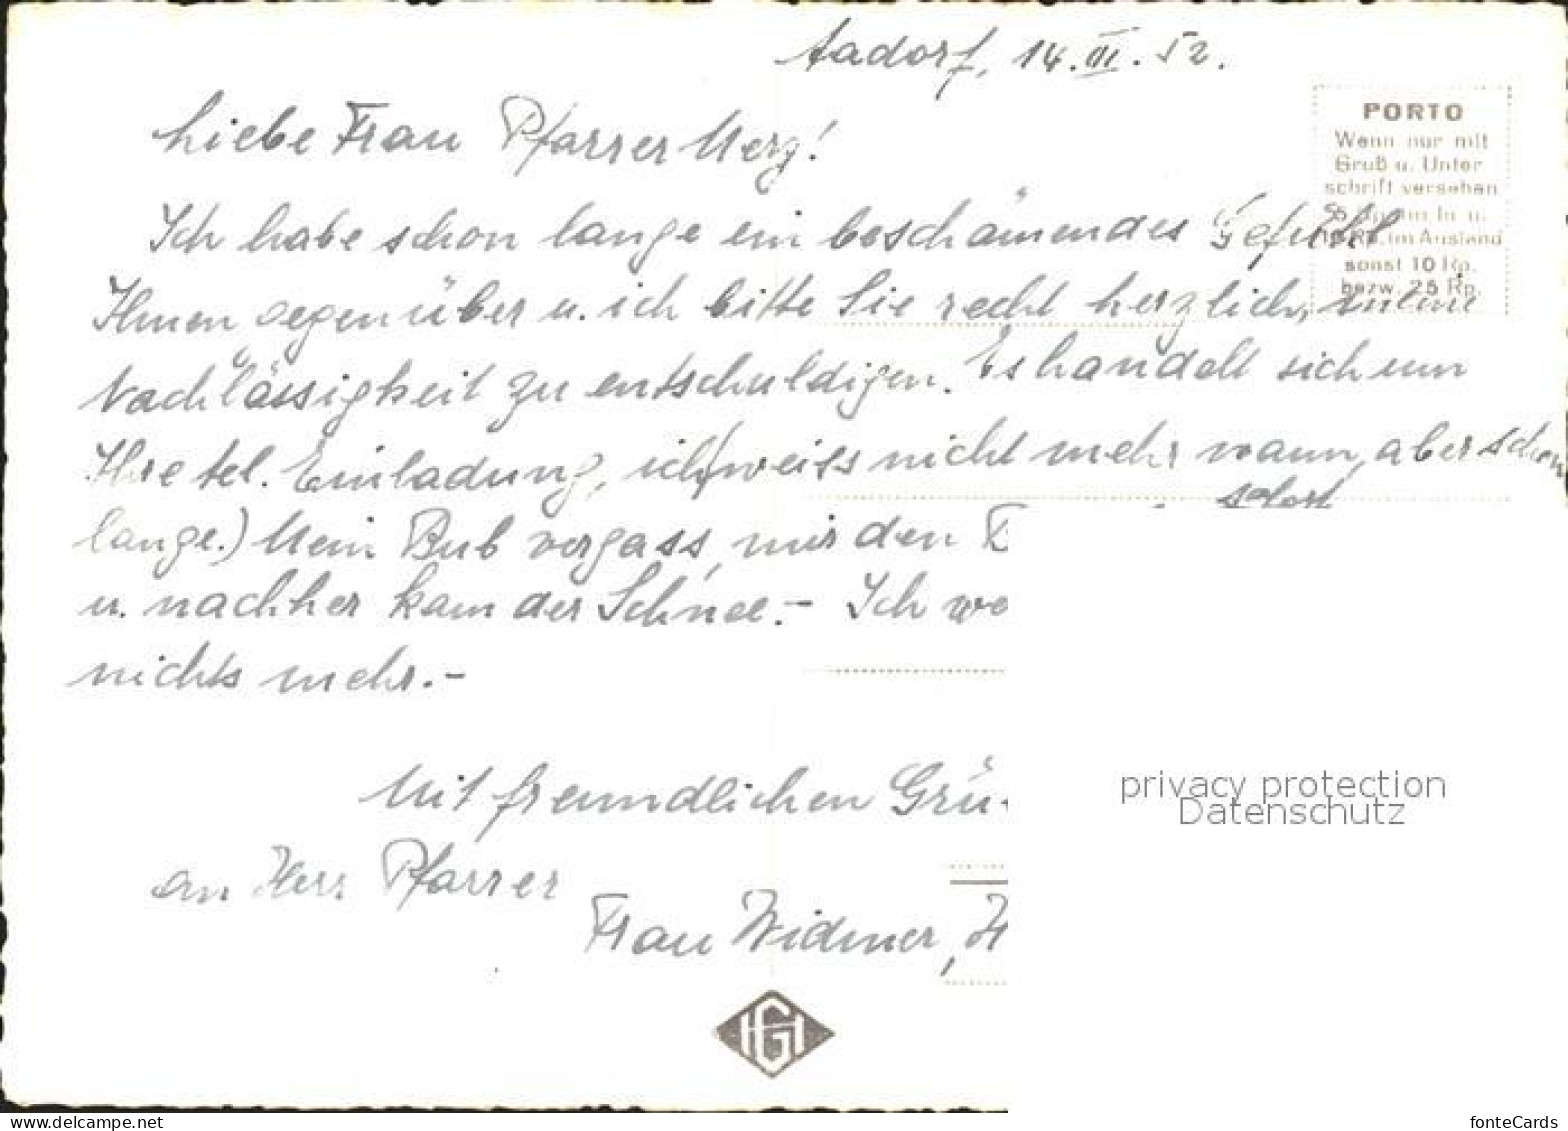 Aadorf, 14. III. 52.
Liebe Frau Pfarrer Merz!
Ich habe schon lange ein beschämendes Gefühl
Ihnen gegenüber u. ich bitte Sie recht herzlich, meine
Nachlässigkeit zu entschuldigen. Es handelt sich um
Ihre tel. Einladung, ich weiss nicht mehr wann, aber schon
lange.) Mein Bub vergass, mir den sofort
u. nachher kam der Schnee.- Ich we
nichts mehr.-
Mit freundlichen Grü
an Herr Pfarrer
Frau Widmer, H
PORTO
Wenn nur mit
Gruß u. Unter
schrift versehen
5 Rp. im In u.
Rp. im Ausland
sonst 10 Rp.
bezw. 25 Rp.
privacy protection
Datenschutz
HGI
www.delcampe.net
fonteCards